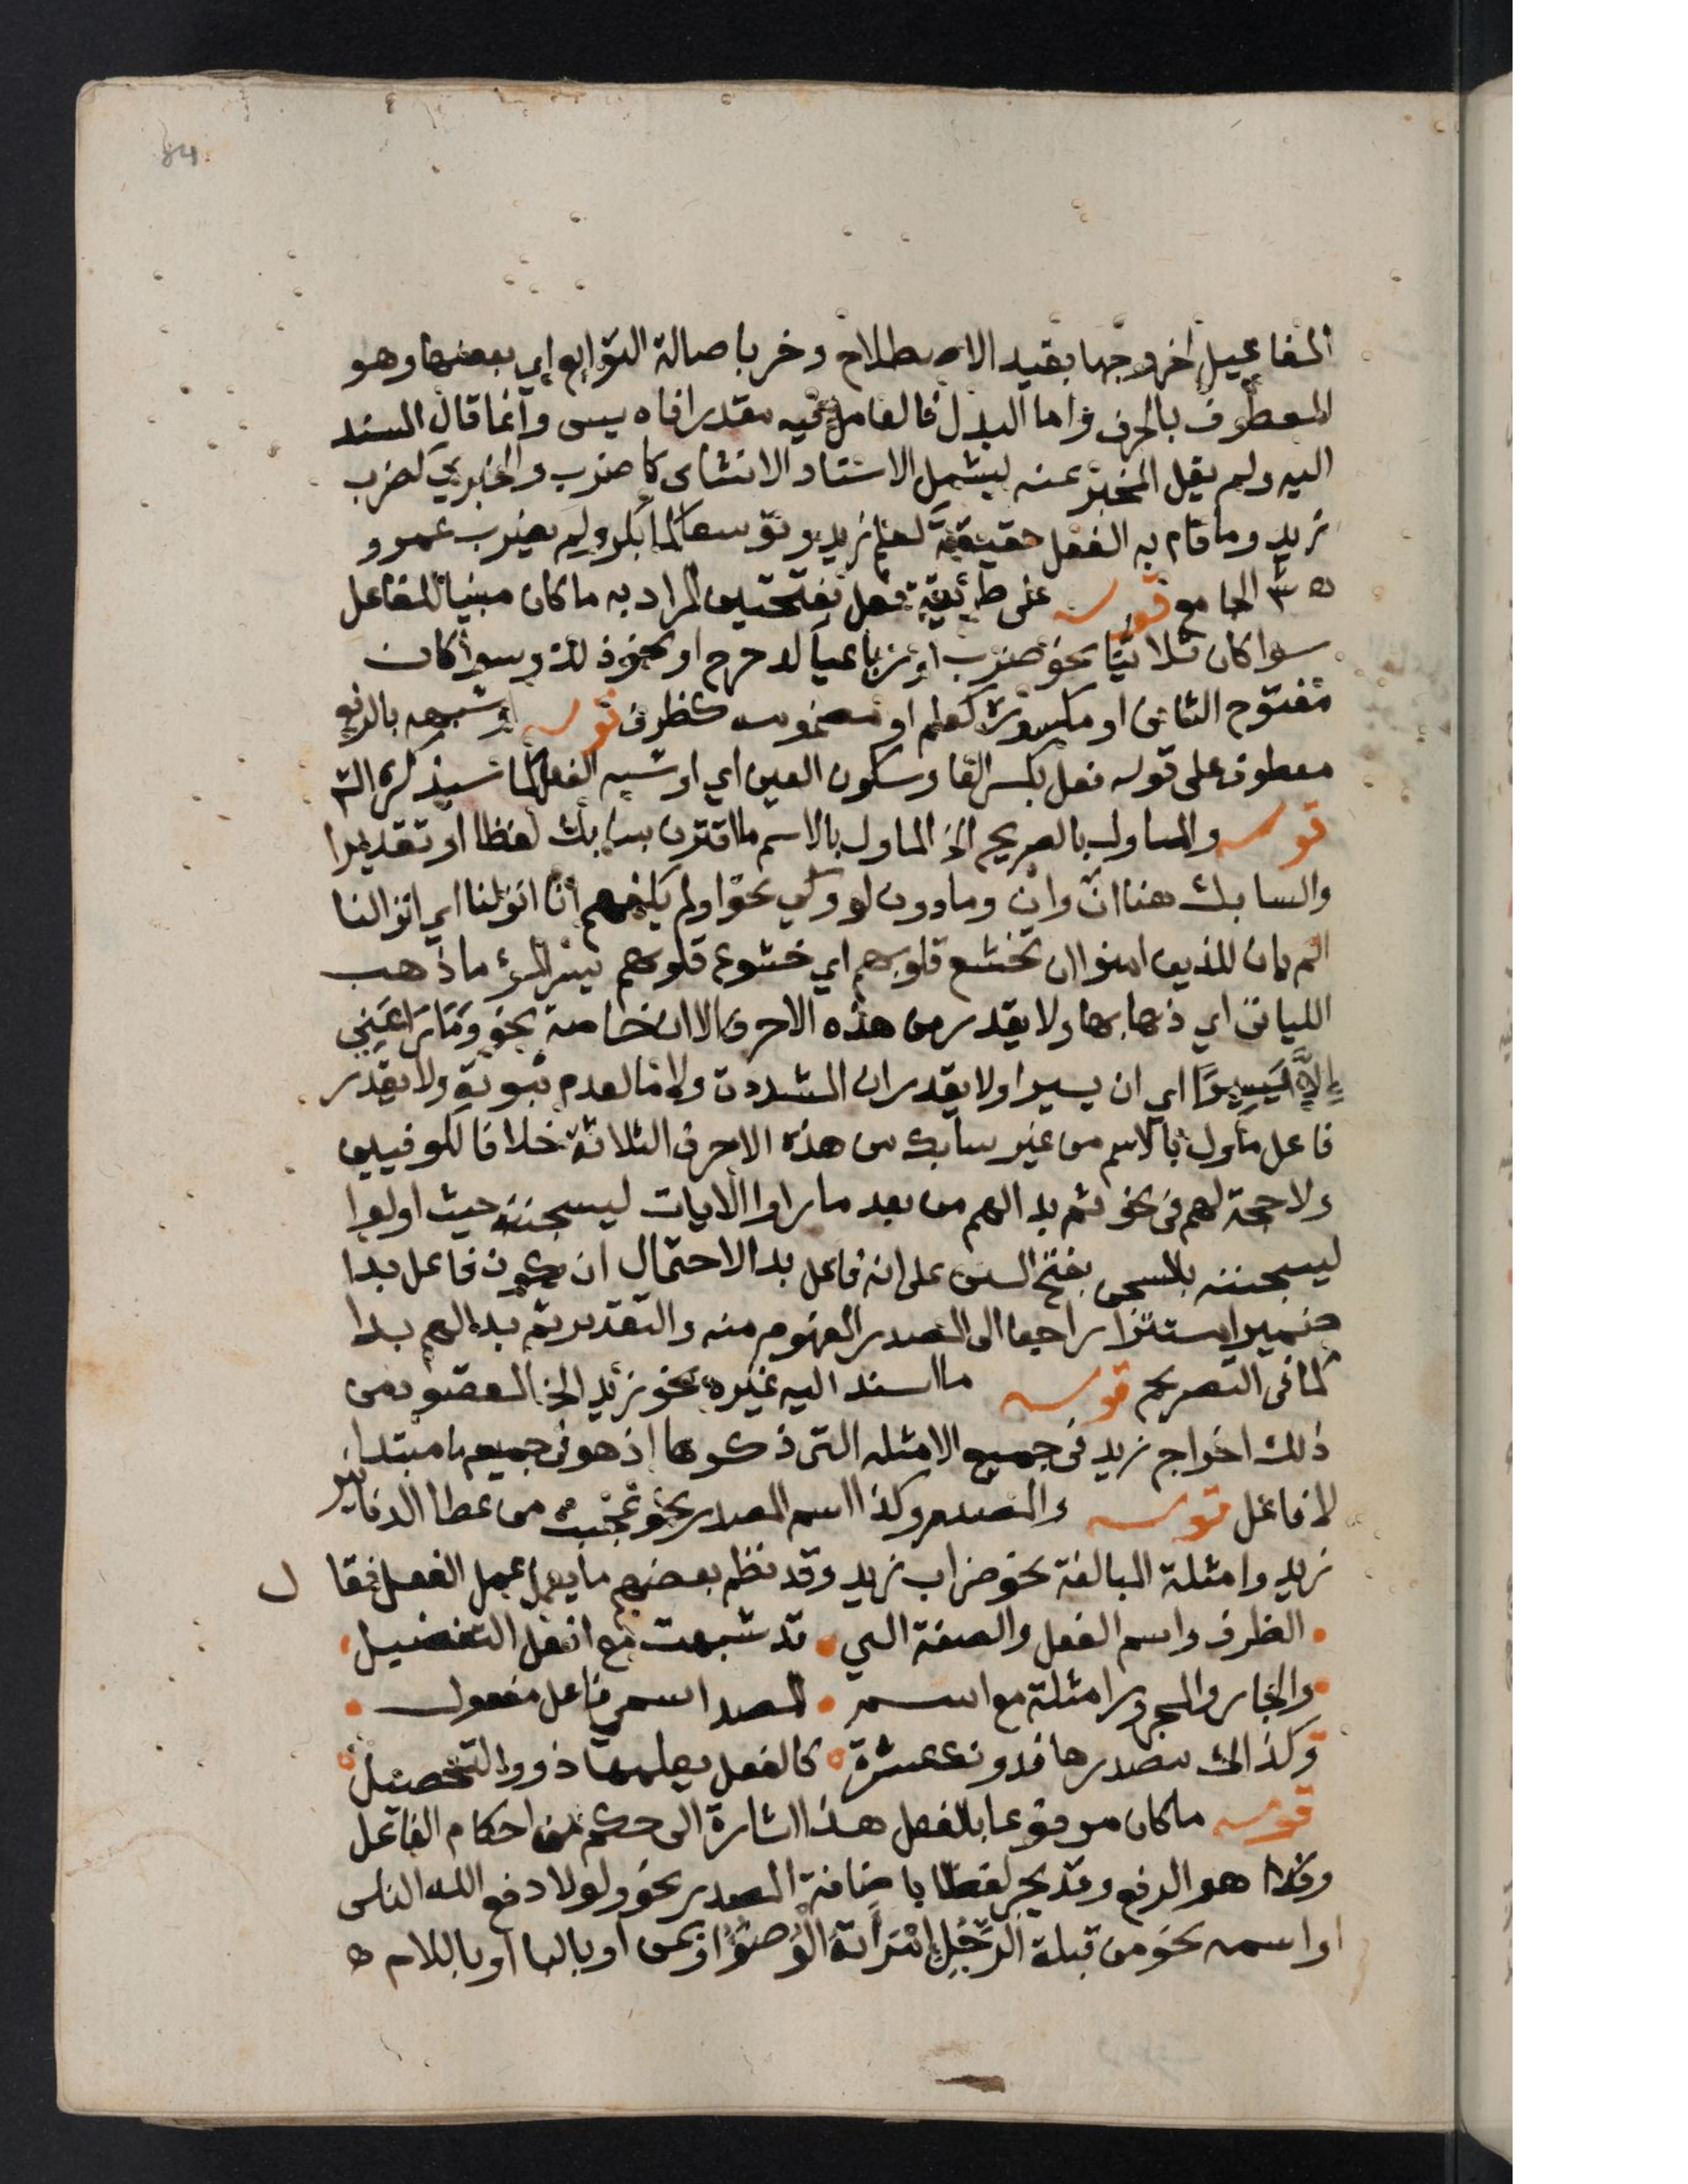 84
المفاعيل لخروجها بقيد الاصطلاح وخرج باصالة التوابع اي بعضها وهو
المعطوف بالحرف واما البدل فالعامل فيه مقدر افاده يسى وانما قال المسند
اليه ولم يقل المخبر عنه ليشمل الاسناد الانشاى كاضرب والخبري كضرب
زيد وما قام به الفعل حقيقة لعلم زيد وتوسعا لما بكر ولم يضرب عمرو
الجامع قوله على طريقة فعل بفتحتين المراد به ما كان مبنيا للفاعل
سواكان ثلاثيا نحو ضرب او رباعيا كدحرج او نحو ذلك وسواكان
مفتوح الثاني او مكسوره كعلم او مضمومه كظرف قوله او شبهه بالرفع
معطوف على قوله فعل بكسر الفا وسكون العين اي او شبه الفعل كما سيذكره الش
قوله والماول بالصريح الخ الماول بالاسم ما اقترن بسابك لفظا او تقديرا
والسابك هنا انّ وان وما دون لو وكي نحو اولم يكفهم انا انزلنا اي انزالنا
الم يان للذين امنوا ان تخشع قلوبهم اي خشوع قلوبهم يسر المرء ما ذهب
الليالى اي ذهابها ولا يقدر من هذه الاحرف الا ان خاصة نحو وما راعني
إلا يسيرا اي ان يسيرا ولا يقدر ان المشددة ولا ما لعدم ثبوته ولا يقدر
فاعل ماول بالاسم من غير سابك من هذه الاحرف الثلاثة خلافا للكوفيين
ولا حجة لهم في نحو ثم بدا لهم من بعد ما راوا الايات ليسجننه حيث اولوا
ليسجننه بالسجن بفتح السين على انه فاعل بدا لاحتمال ان يكون فاعل بدا
ضميرا مستترا راجعا الى المصدر المفهوم منه والتقدير ثم بدا لهم بدا
كما في التصريح قوله ما اسند اليه غيره نحو زيد الخ المقصود من
ذلك اخراج زيد في جميع الامثلة التي ذكرها اذ هو في جميعها مبتدا
لا فاعل قوله والمصدر وكذا اسم المصدر نحو عجبت من عطا الدنانير
زيد وامثلة المبالغة نحو ضراب زيد وقد نظم بعضهم ما يعمل عمل الفعل فقال
الظرف واسم الفعل والصفة التي قد شبهت مع افعل التفضيل
والجار والمجرور امثلة مع اسم المصدر اسمي فاعل مفعول
وكذاك مصدرها فدونك عشرة كالفعل يعلمها ذوو التحصيل
قوله ما كان مرفوعا بالفعل هذا اشارة الى حكم من احكام الفاعل
وهو الرفع وقد يجر لفظا باضافة المصدر نحو ولولا دفع الله الناس
او اسمه نحو من قبلة الرجل امراته الوضوء او بمن او بالبا او باللام